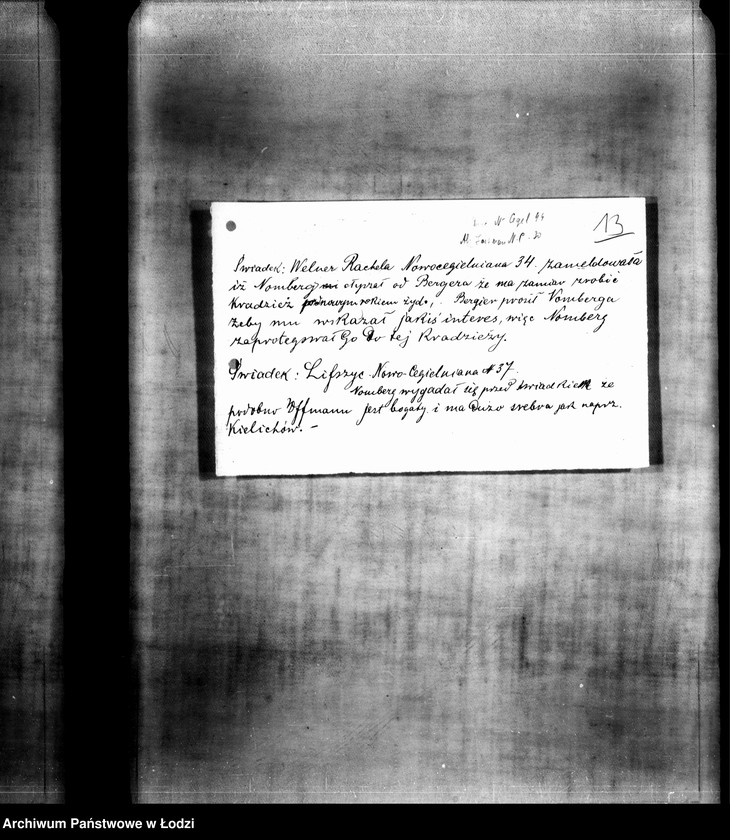 N Cgel 44
13
N P. 20
Świadek: Welner Rachela Nowocegielniana 34. zameldowała
iż Nomberg otyrzał od Bergera że ma zamiar zrobić
Kradzież nowym rokiem żyd.,. Bergier prosił Nomberga
żeby mu wskazał jakiś interes, więc Nomberg
zaprotegował Go Do tej Kradzieży.
Świadek: Lifszyc Nowo-Cegielniana N 37.
Nomberg wygadał się przed świadkiem że
podobno Offmann jest bogaty i ma Dużo srebra jak naprz.
Kielichów. –
Archiwum Państwowe w Łodzi